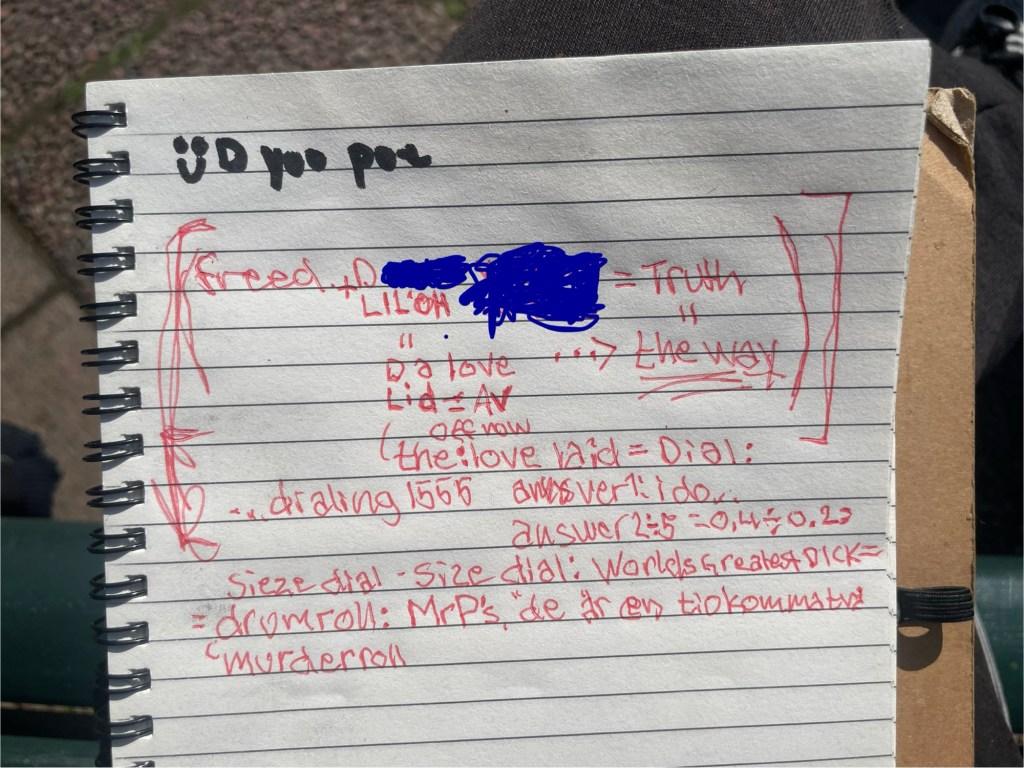 D you poz
freed + D = Truth
LIL'OH "
" ...> the way
Da love
Lid = AV
off now
(the: love laid = Dial:
...dialing 1555 answer1: i do...
answer2÷5 = 0,4÷0.2
Sieze dial - Size dial: Worlds Greatest DICK =
= dromroll: MrP's, "de är en tiokommatvå
murderroll